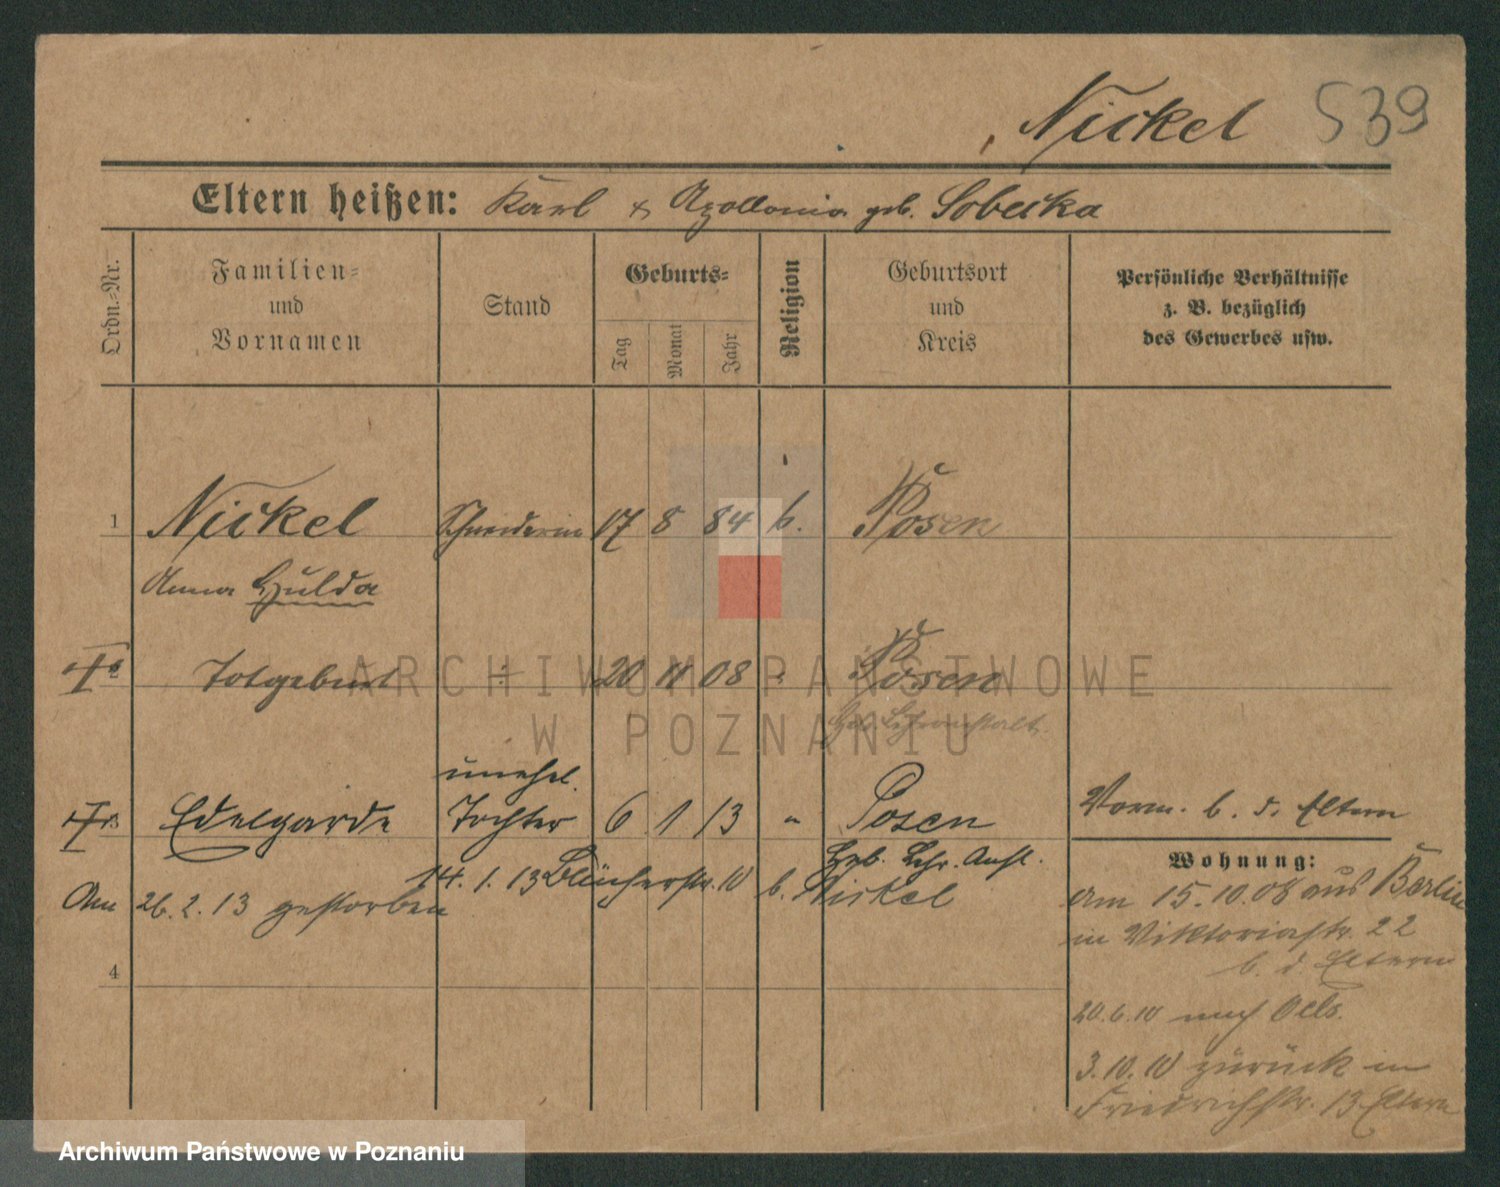 Nickel 539
Eltern heißen: Karl & Apollonia geb. Sobecka
Ordn.=Nr.
Familien=
und
Vornamen
Stand
Geburts=
Tag
Monat
Jahr
Religion
Geburtsort
und
Kreis
Persönliche Verhältnisse
z. B. bezüglich
des Gewerbes usw.
1 Nickel Schneiderin 17 8 84 k. Posen
Anna Hulda
2 Totgeburt ÷ 20 11 08 " Posen
Geb. Lehranstalt
unehel.
3 Edelgarde Tochter 6 1 13 " Posen
Vorm. b. d. Eltern
Geb. Lehr. Anst.
14. 1. 13 Blücherstr. 10 b. Nickel
Am 26. 2. 13 gestorben
4
Wohnung:
am 15. 10. 08 aus Berlin
in Viktoriastr. 22
b. d. Eltern
20. 6. 10 nach Oels.
3. 10. 10 zurück in
Friedrichstr. 13 Eltern
ARCHIWUM PAŃSTWOWE
W POZNANIU
Archiwum Państwowe w Poznaniu